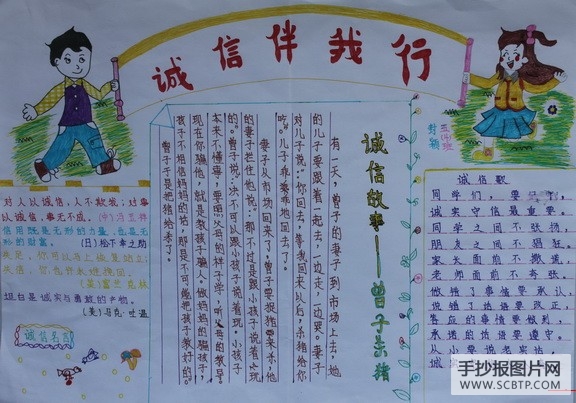 诚信伴我行
对人以诚信，人不欺我；对事
以诚信，事无不成。
信用既是无形的力量，也是无
形的财富。
(日)松下幸之助
坦白是诚实与勇敢的产物。
(美)马克·吐温
诚信名言
诚信故事——曾子杀猪
有一天，曾子的妻子到市场上去，她
的儿子要跟着一起去，一边走，一边哭。妻子
对儿子说：“你回去，等我回来以后，杀猪给你
吃。”儿子乖乖地回去了。
妻子从市场回来了，曾子要捉猪来杀，他
的妻子拦住他说：“那不过是跟小孩子说着玩
的。”曾子说：“决不可以跟小孩子说着玩。小孩子
本来不懂事，要照父母的样子学，听父母的教导。
现在你骗他，就是教孩子骗人。做妈妈的骗孩子，
孩子不相信妈妈的话，那是不可能把孩子教好的。”
曾子于是把猪给杀了。
诚信歌
同学们，要
诚实守信最重要。
同学之间不张扬，
朋友之间不猖狂。
家长面前不撒谎，
老师面前不夸张。
做错了事情要承认，
说错了话语要改正。
答应的事情要做到，
承诺的话语要遵守。
从小要说老实话，
手抄报图片网
WWW.SCBTP.COM